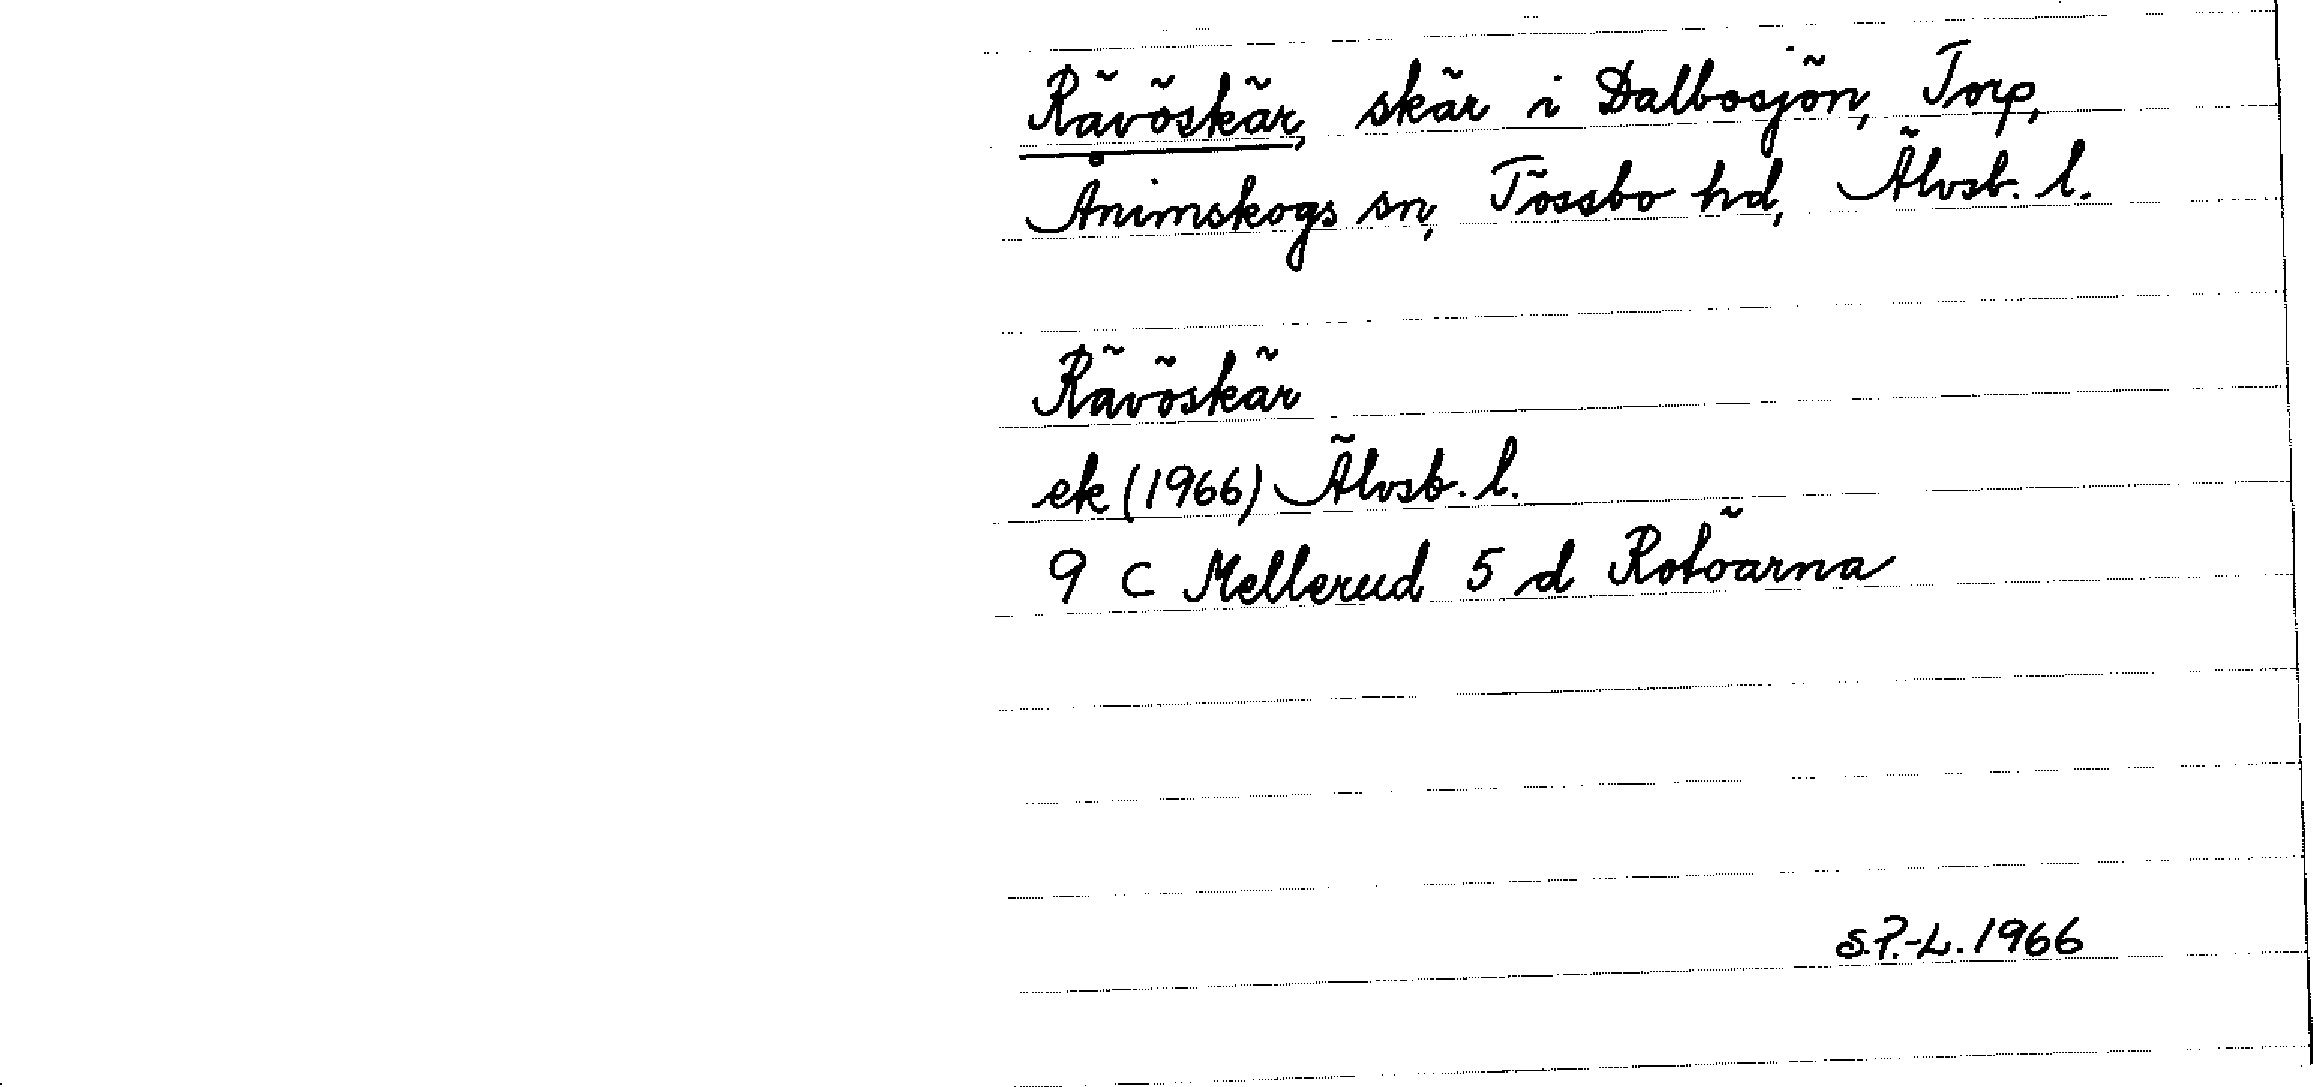 Rävöskär, skär i Dalbosjön, Torp,
Ånimskogs sn, Tössbo hd, Älvsb. l.
Rävöskär
ek (1966) Älvsb. l.
9 C Mellerud 5 d Rotöarna
S.P.-L. 1966